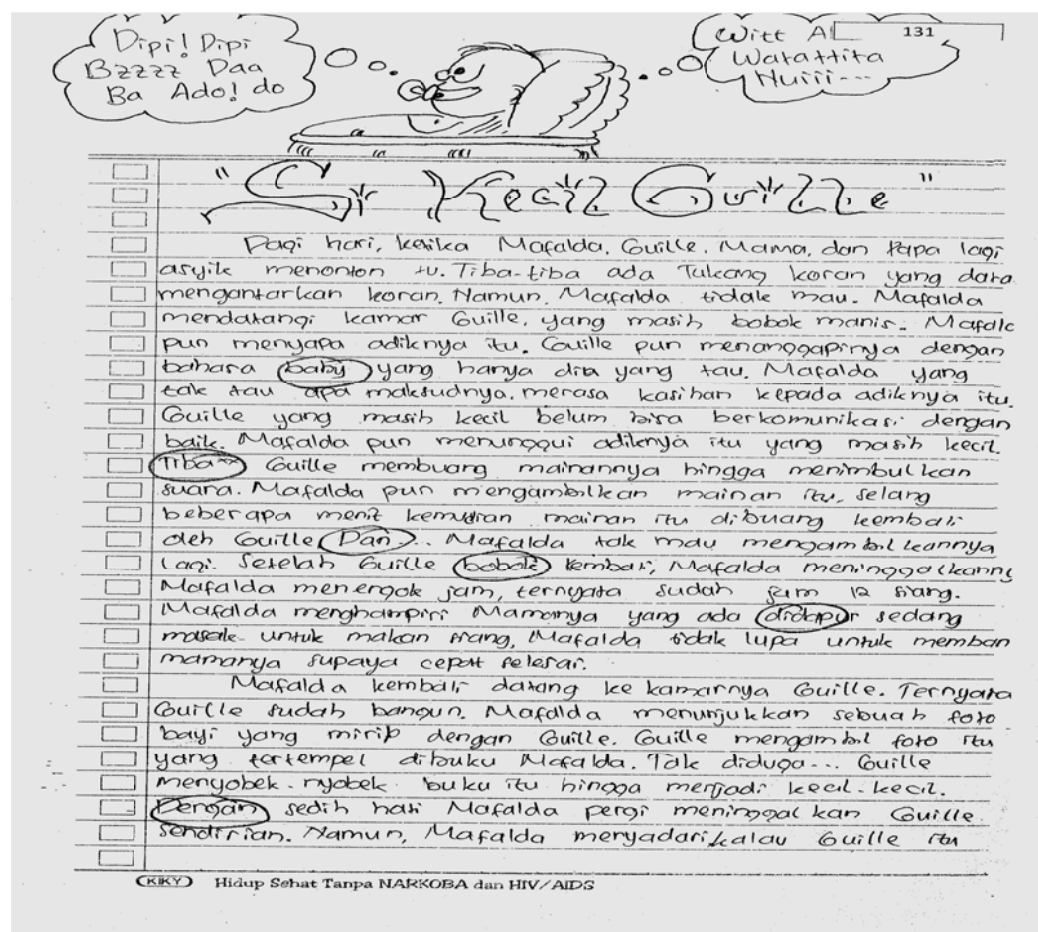 Dipi! Dipi
Bzzzz Daa
Ba Ado! do
Witt A
131
Watattita
Nuiii---
"Si Kecil Guille"
Pagi hari, ketika Mafalda, Guille, Mama, dan Papa lagi
asyik menonton tv. Tiba-tiba ada Tukang koran yang data
mengantarkan koran. Namun, Mafalda tidak mau. Mafalda
mendatangi kamar Guille, yang masih bobok manis. Mafald
pun menyapa adiknya itu. Guille pun menanggapinya dengan
bahasa baby yang hanya dia yang tau. Mafalda yang
tak tau apa maksudnya, merasa kasihan kepada adiknya itu.
Guille yang masih kecil belum bisa berkomunikasi dengan
baik. Mafalda pun menunggui adiknya itu yang masih kecil.
Tiba~ Guille membuang mainannya hingga menimbulkan
suara. Mafalda pun mengambilkan mainan itu, selang
beberapa menit kemudian mainan itu dibuang kembali
oleh Guille. Dan... Mafalda tak mau mengambilkannya
lagi. Setelah Guille bobok kembali, Mafalda meninggalkanny
Mafalda menengok jam, ternyata sudah jam 12 siang.
Mafalda menghampiri Mamanya yang ada didapur sedang
masak untuk makan siang, Mafalda tidak lupa untuk memban
mamanya supaya cepat selesai.
Mafalda kembali datang ke kamarnya Guille. Ternyata
Guille sudah bangun. Mafalda menunjukkan sebuah foto
bayi yang mirip dengan Guille. Guille mengambil foto itu
yang tertempel dibuku Mafalda. Tak diduga... Guille
menyobek-nyobek buku itu hingga menjadi kecil-kecil.
Dengan sedih hati Mafalda pergi meninggalkan Guille
sendirian. Namun, Mafalda menyadari kalau Guille itu
KIKY Hidup Sehat Tanpa NARKOBA dan HIV/AIDS